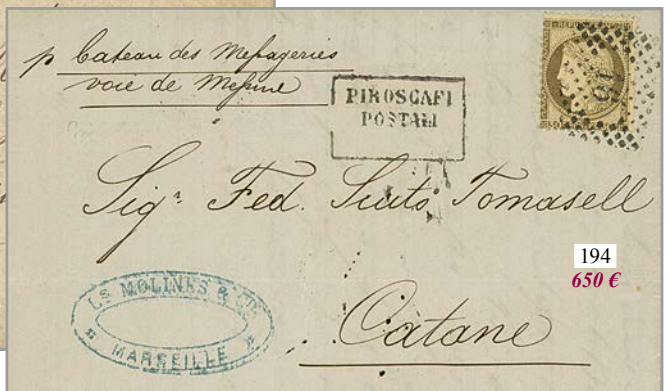 p bateau des Messageries
voie de Messine
PIROSCAFI
POSTALI
REPUB
Sigr. Fed. Sciuto Tomasell
194
650 €
Ls MOLINES & CIE
MARSEILLE
Catane